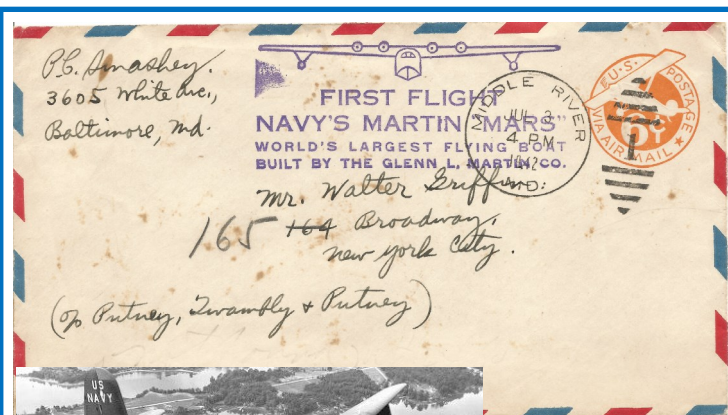 P.C. Smashey.
3605 White Ave.,
Baltimore, Md.
FIRST FLIGHT
NAVY'S MARTIN "MARS"
WORLD'S LARGEST FLYING BOAT
BUILT BY THE GLENN L. MARTIN CO.
MIDDLE RIVER
JUL 3
4 PM
1942
MD.
U.S. POSTAGE
6¢
VIA AIR MAIL
1
Mr. Walter Griffin
165 164 Broadway,
New York City.
(c/o Putney, Twombly & Putney)
US
NAVY